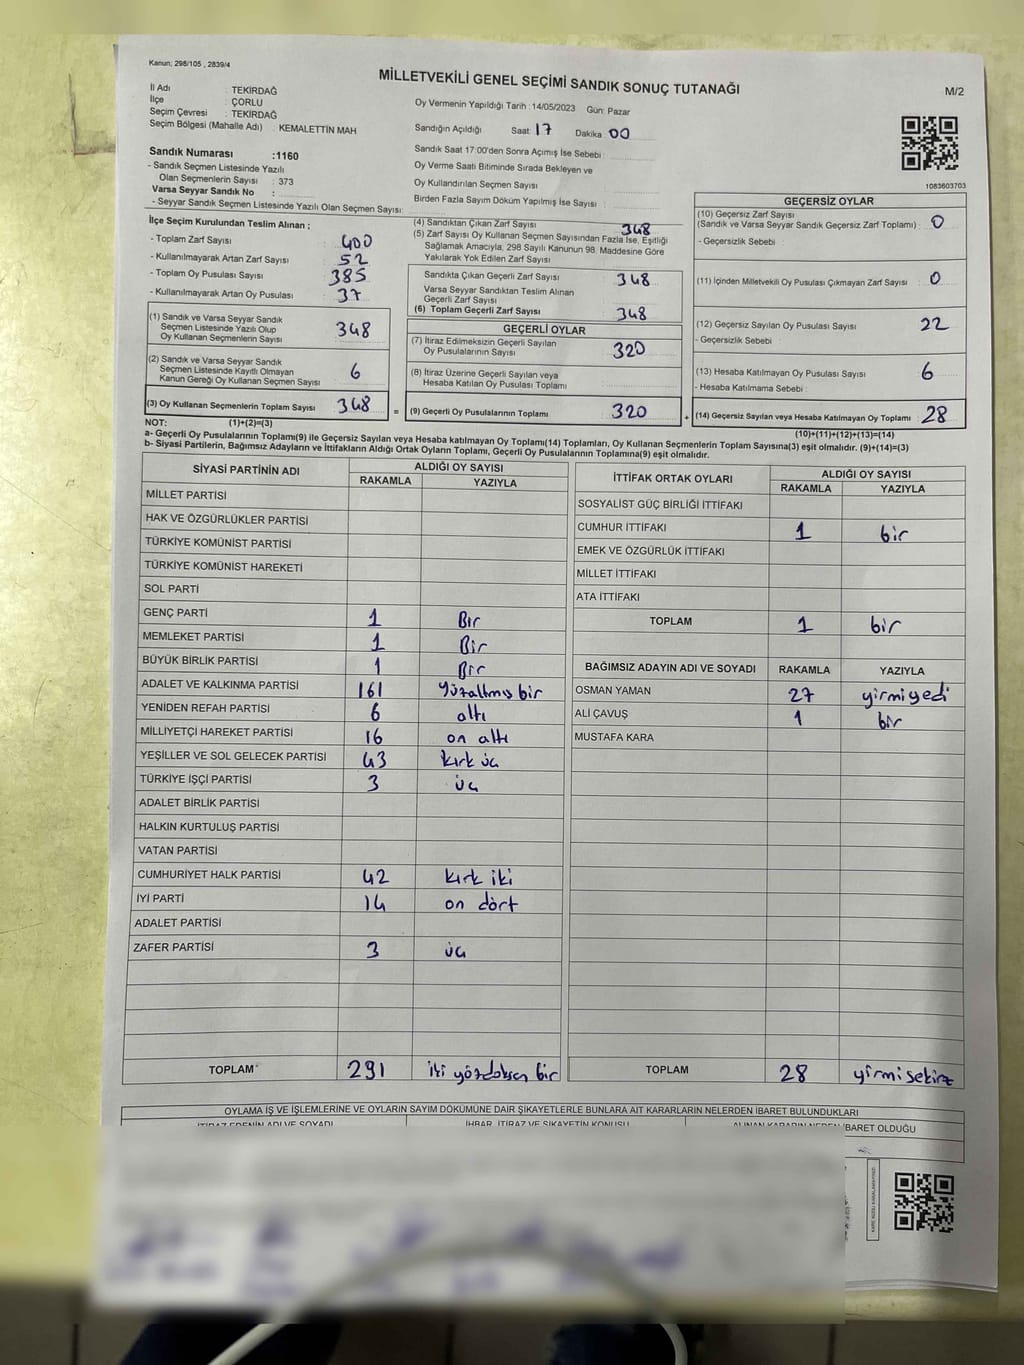 Kanun; 298/105 , 2839/4
MİLLETVEKİLİ GENEL SEÇİMİ SANDIK SONUÇ TUTANAĞI
M/2
İl Adı : TEKİRDAĞ
İlçe : ÇORLU
Seçim Çevresi : TEKİRDAĞ
Seçim Bölgesi (Mahalle Adı) : KEMALETTİN MAH
Sandık Numarası :1160
- Sandık Seçmen Listesinde Yazılı
Olan Seçmenlerin Sayısı : 373
Varsa Seyyar Sandık No :
- Seyyar Sandık Seçmen Listesinde Yazılı Olan Seçmen Sayısı:
Oy Vermenin Yapıldığı Tarih : 14/05/2023 Gün: Pazar
Sandığın Açıldığı Saat: 17 Dakika : 00
Sandık Saat 17:00'den Sonra Açımış İse Sebebi :
Oy Verme Saati Bitiminde Sırada Bekleyen ve
Oy Kullandırılan Seçmen Sayısı
Birden Fazla Sayım Döküm Yapılmış İse Sayısı :
1083603703
İlçe Seçim Kurulundan Teslim Alınan ;
- Toplam Zarf Sayısı : 400
- Kullanılmayarak Artan Zarf Sayısı : 52
- Toplam Oy Pusulası Sayısı : 385
- Kullanılmayarak Artan Oy Pusulası : 37
(1) Sandık ve Varsa Seyyar Sandık
Seçmen Listesinde Yazılı Olup
Oy Kullanan Seçmenlerin Sayısı 348
(2) Sandık ve Varsa Seyyar Sandık
Seçmen Listesinde Kayıtlı Olmayan
Kanun Gereği Oy Kullanan Seçmen Sayısı 6
(3) Oy Kullanan Seçmenlerin Toplam Sayısı 348 =
(4) Sandıktan Çıkan Zarf Sayısı 348
(5) Zarf Sayısı Oy Kullanan Seçmen Sayısından Fazla İse, Eşitliği
Sağlamak Amacıyla, 298 Sayılı Kanunun 98. Maddesine Göre
Yakılarak Yok Edilen Zarf Sayısı
Sandıkta Çıkan Geçerli Zarf Sayısı 348
Varsa Seyyar Sandıktan Teslim Alınan
Geçerli Zarf Sayısı
(6) Toplam Geçerli Zarf Sayısı 348
GEÇERLİ OYLAR
(7) İtiraz Edilmeksizin Geçerli Sayılan
Oy Pusulalarının Sayısı 320
(8) İtiraz Üzerine Geçerli Sayılan veya
Hesaba Katılan Oy Pusulası Toplamı
(9) Geçerli Oy Pusulalarının Toplamı 320 +
GEÇERSİZ OYLAR
(10) Geçersiz Zarf Sayısı
(Sandık ve Varsa Seyyar Sandık Geçersiz Zarf Toplamı) : 0
- Geçersizlik Sebebi :
(11) İçinden Milletvekili Oy Pusulası Çıkmayan Zarf Sayısı : 0
(12) Geçersiz Sayılan Oy Pusulası Sayısı 22
- Geçersizlik Sebebi
(13) Hesaba Katılmayan Oy Pusulası Sayısı 6
- Hesaba Katılmama Sebebi :
(14) Geçersiz Sayılan veya Hesaba Katılmayan Oy Toplamı : 28
NOT: (1)+(2)=(3) (10)+(11)+(12)+(13)=(14)
a- Geçerli Oy Pusulalarının Toplamı(9) ile Geçersiz Sayılan veya Hesaba katılmayan Oy Toplamı(14) Toplamları, Oy Kullanan Seçmenlerin Toplam Sayısına(3) eşit olmalıdır. (9)+(14)=(3)
b- Siyasi Partilerin, Bağımsız Adayların ve İttifakların Aldığı Ortak Oyların Toplamı, Geçerli Oy Pusulalarının Toplamına(9) eşit olmalıdır.
SİYASİ PARTİNİN ADI ALDIĞI OY SAYISI
RAKAMLA YAZIYLA
MİLLET PARTİSİ
HAK VE ÖZGÜRLÜKLER PARTİSİ
TÜRKİYE KOMÜNİST PARTİSİ
TÜRKİYE KOMÜNİST HAREKETİ
SOL PARTİ
GENÇ PARTİ 1 Bir
MEMLEKET PARTİSİ 1 Bir
BÜYÜK BİRLİK PARTİSİ 1 Bir
ADALET VE KALKINMA PARTİSİ 161 yüzaltmış bir
YENİDEN REFAH PARTİSİ 6 altı
MİLLİYETÇİ HAREKET PARTİSİ 16 on altı
YEŞİLLER VE SOL GELECEK PARTİSİ 43 kırk üç
TÜRKİYE İŞÇİ PARTİSİ 3 üç
ADALET BİRLİK PARTİSİ
HALKIN KURTULUŞ PARTİSİ
VATAN PARTİSİ
CUMHURİYET HALK PARTİSİ 42 kırk iki
İYİ PARTİ 14 on dört
ADALET PARTİSİ
ZAFER PARTİSİ 3 üç
TOPLAM 291 iki yüzdoksan bir
İTTİFAK ORTAK OYLARI ALDIĞI OY SAYISI
RAKAMLA YAZIYLA
SOSYALİST GÜÇ BİRLİĞİ İTTİFAKI
CUMHUR İTTİFAKI 1 bir
EMEK VE ÖZGÜRLÜK İTTİFAKI
MİLLET İTTİFAKI
ATA İTTİFAKI
TOPLAM 1 bir
BAĞIMSIZ ADAYIN ADI VE SOYADI RAKAMLA YAZIYLA
OSMAN YAMAN 27 yirmiyedi
ALİ ÇAVUŞ 1 bir
MUSTAFA KARA
TOPLAM 28 yirmisekiz
OYLAMA İŞ VE İŞLEMLERİNE VE OYLARIN SAYIM DÖKÜMÜNE DAİR ŞİKAYETLERLE BUNLARA AİT KARARLARIN NELERDEN İBARET BULUNDUKLARI
İTİRAZ EDENİN ADI VE SOYADI İHBAR, İTİRAZ VE ŞİKAYETİN KONUSU ALINAN KARARIN NEDEN İBARET OLDUĞU